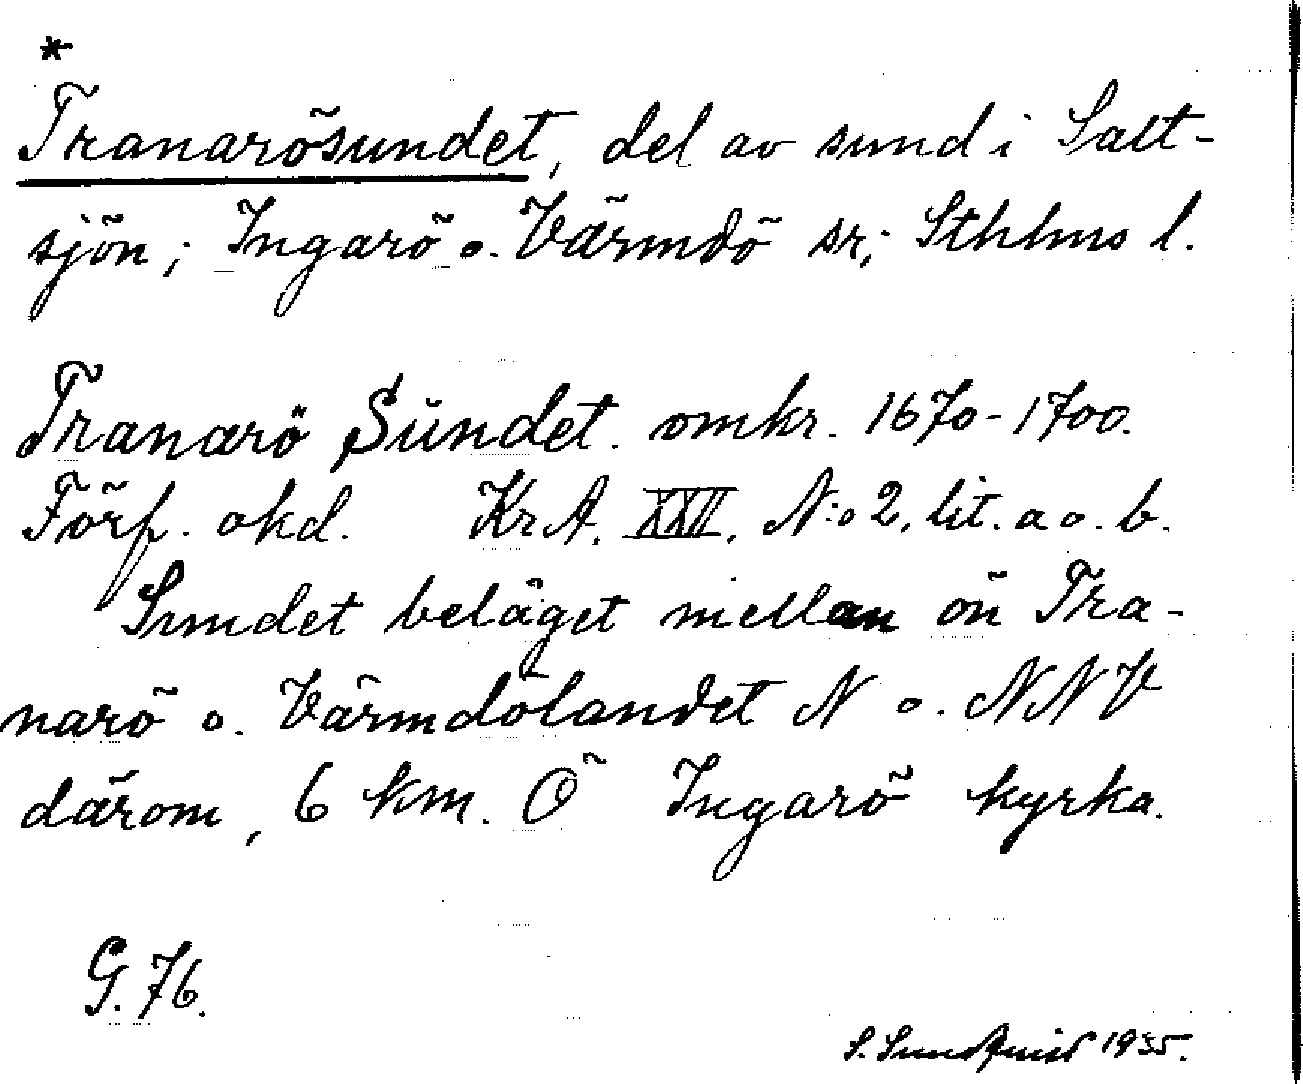 *
Tranarösundet, del av sund i Salt-
sjön; Ingarö o. Värmdö sr; Sthlms l.
Tranarö Sŭndet. omkr. 1670-1700.
Förf. okd. KrA. XXII. N:o 2, lit. a o. b.
Sundet beläget mellan ön Tra-
narö o. Värmdölandet N o. NNV
därom, 6 km. Ö Ingarö kyrka.
G. 76.
S. Sundqvist 1935.